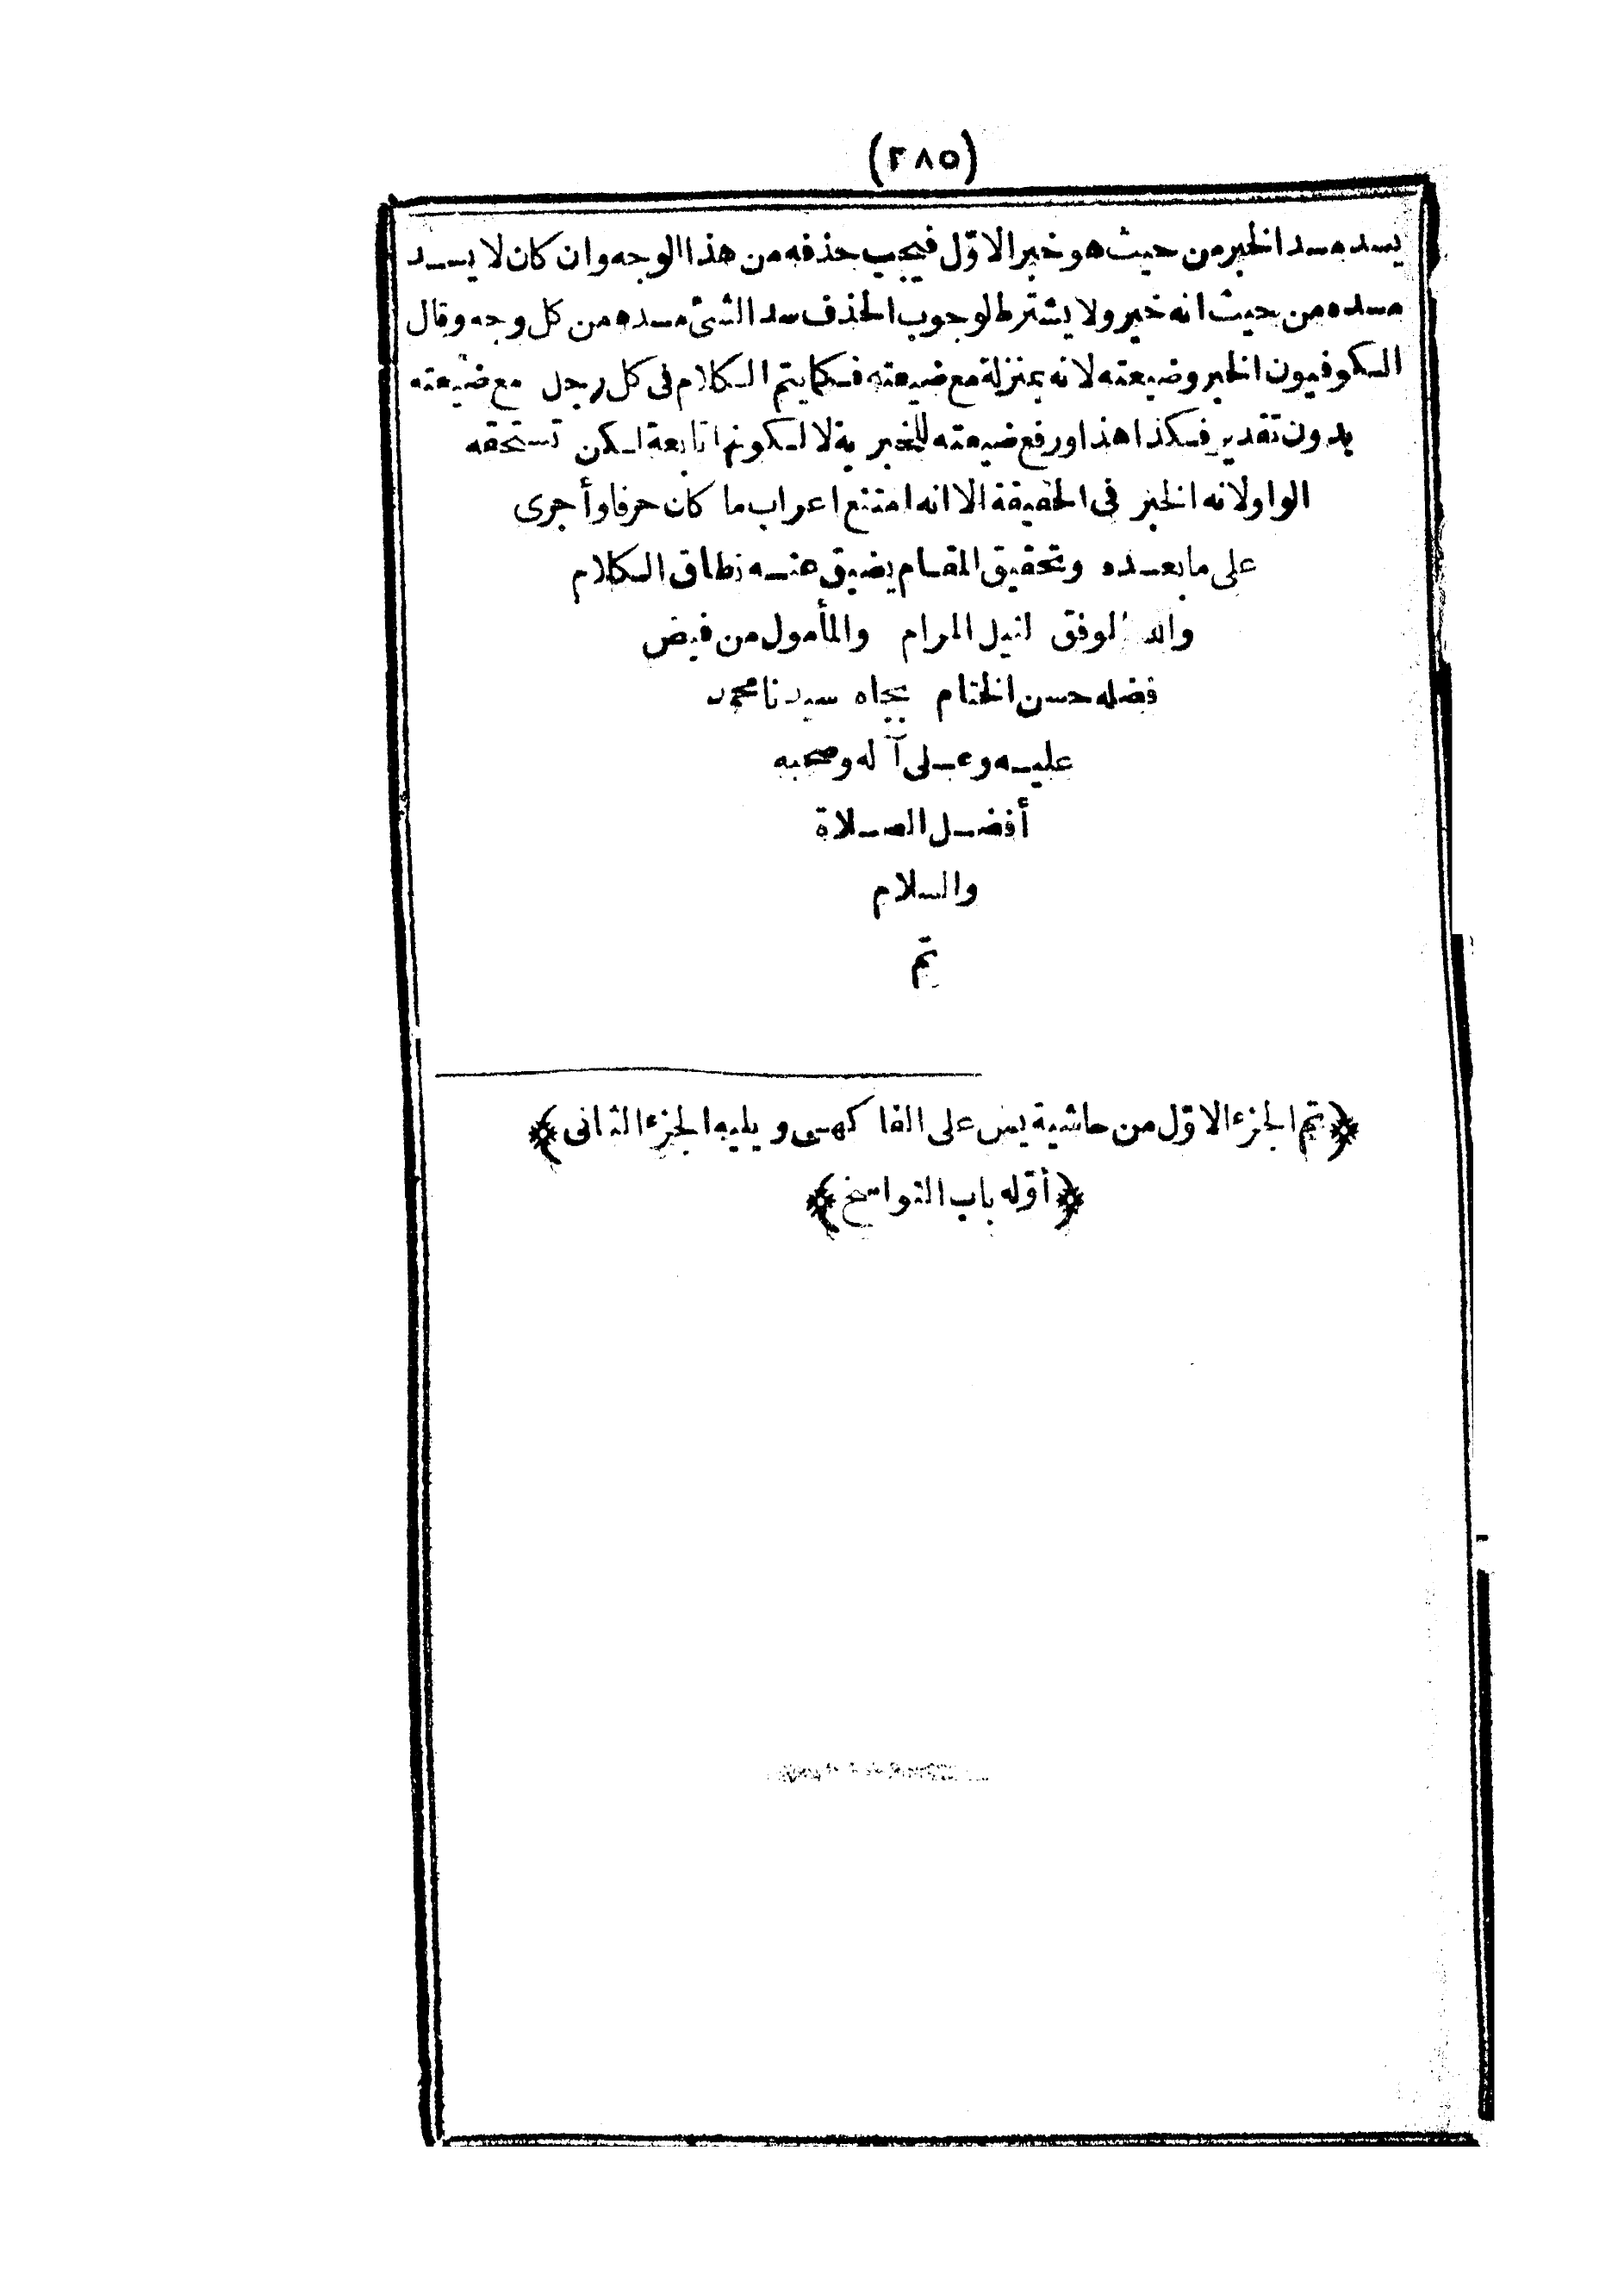 (٢٨٥)
يسد مسد الخبر من حيث هو خبر الاوّل فيجب حذفه من هذا الوجه وان كان لا يسد
مسده من حيث انه خبر ولا يشترط لوجوب الحذف سد الشئ مسده من كل وجه وقال
الكوفيون الخبر وضيعته لانه بمنزلة مع ضيعته فكما يتم الكلام فى كل رجل مع ضيعته
بدون تقدير فكذا هذا ورفع ضيعته للخبرية لا لكونها تابعة لكن تستحقه
الواو لانه الخبز فى الحقيقة الا انه امتنع اعراب ما كان حرفا وأجرى
على ما بعده وتحقيق المقام يضيق عنه نطاق الكلام
والله الموفق لنيل المرام والمأمول من فيض
فضله حسن الختام بجاه سيدنا محمد
عليه وعلى آله وصحبه
أفضل الصلاة
والسلام
تم
﴿تم الجزء الاوّل من حاشية يس على الفاكهى ويليه الجزء الثانى﴾
﴿أوّله باب النواسخ﴾